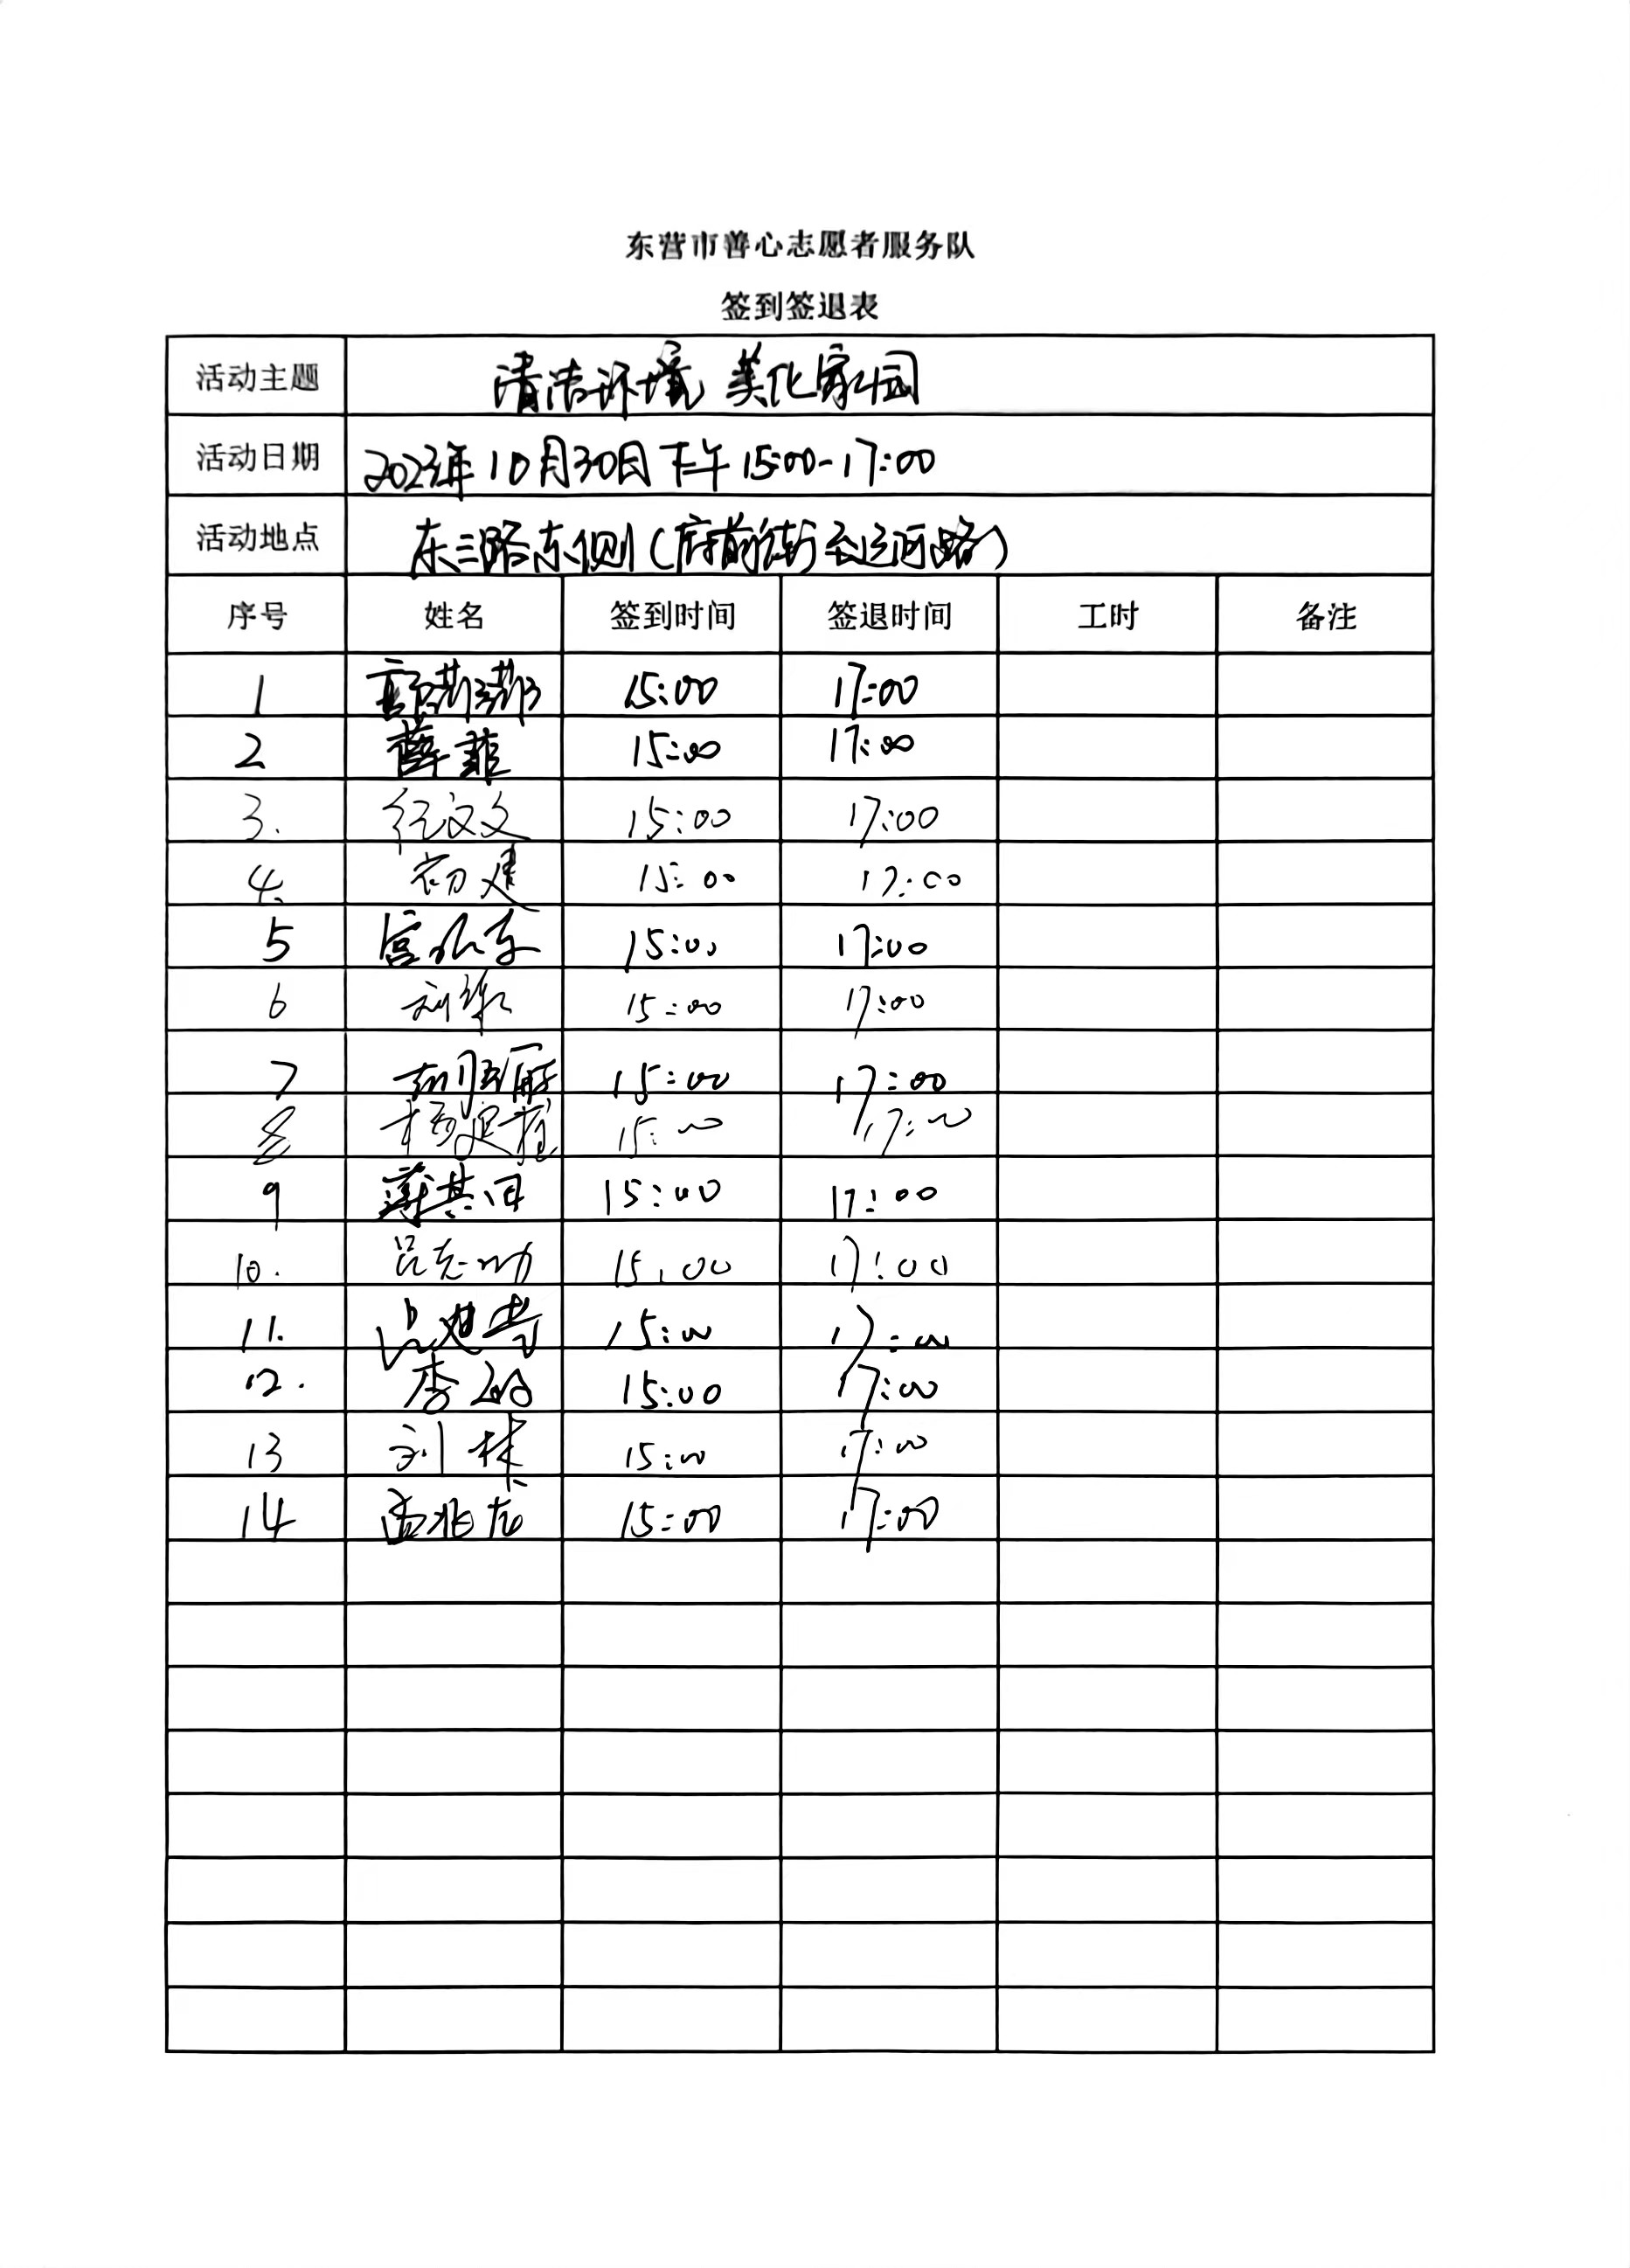 东营市善心志愿者服务队
签到签退表
活动主题 清洁环境 美化家园
活动日期 2023年10月30日下午15:00-17:00
活动地点 东三路东侧(府前街至运河路)
序号 姓名 签到时间 签退时间 工时 备注
1 15:00 17:00
2 薛菲 15:00 17:00
3. 纪文文 15:00 17:00
4. 初建 15:00 17:00
5 宫永东 15:00 17:00
6 15:00 17:00
7 15:00 17:00
8 15:00 17:00
9 15:00 17:00
10. 吕志功 15:00 17:00
11. 15:00 17:00
12. 李 15:00 17:00
13 刘林 15:00 17:00
14 孟兆龙 15:00 17:00